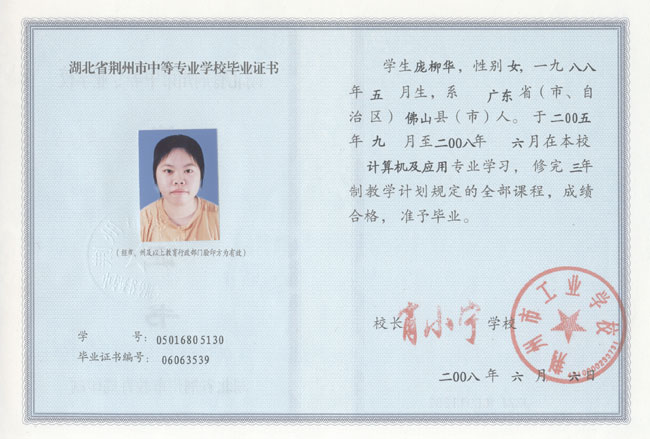 湖北省荆州市中等专业学校毕业证书
(经市、州及以上教育行政部门验印方为有效)
学 号: 05016805130
毕业证书编号: 06063539
学生庞柳华, 性别女, 一九八八
年 五 月生, 系 广东省(市、自
治区) 佛山县(市)人。于二00五
年 九 月至二00八年 六月在本校
计算机及应用专业学习, 修完 三年
制教学计划规定的全部课程, 成绩
合格, 准予毕业。
荆州市工业学校
校长 肖小宁 学校
二00八 年 六 月 六 日